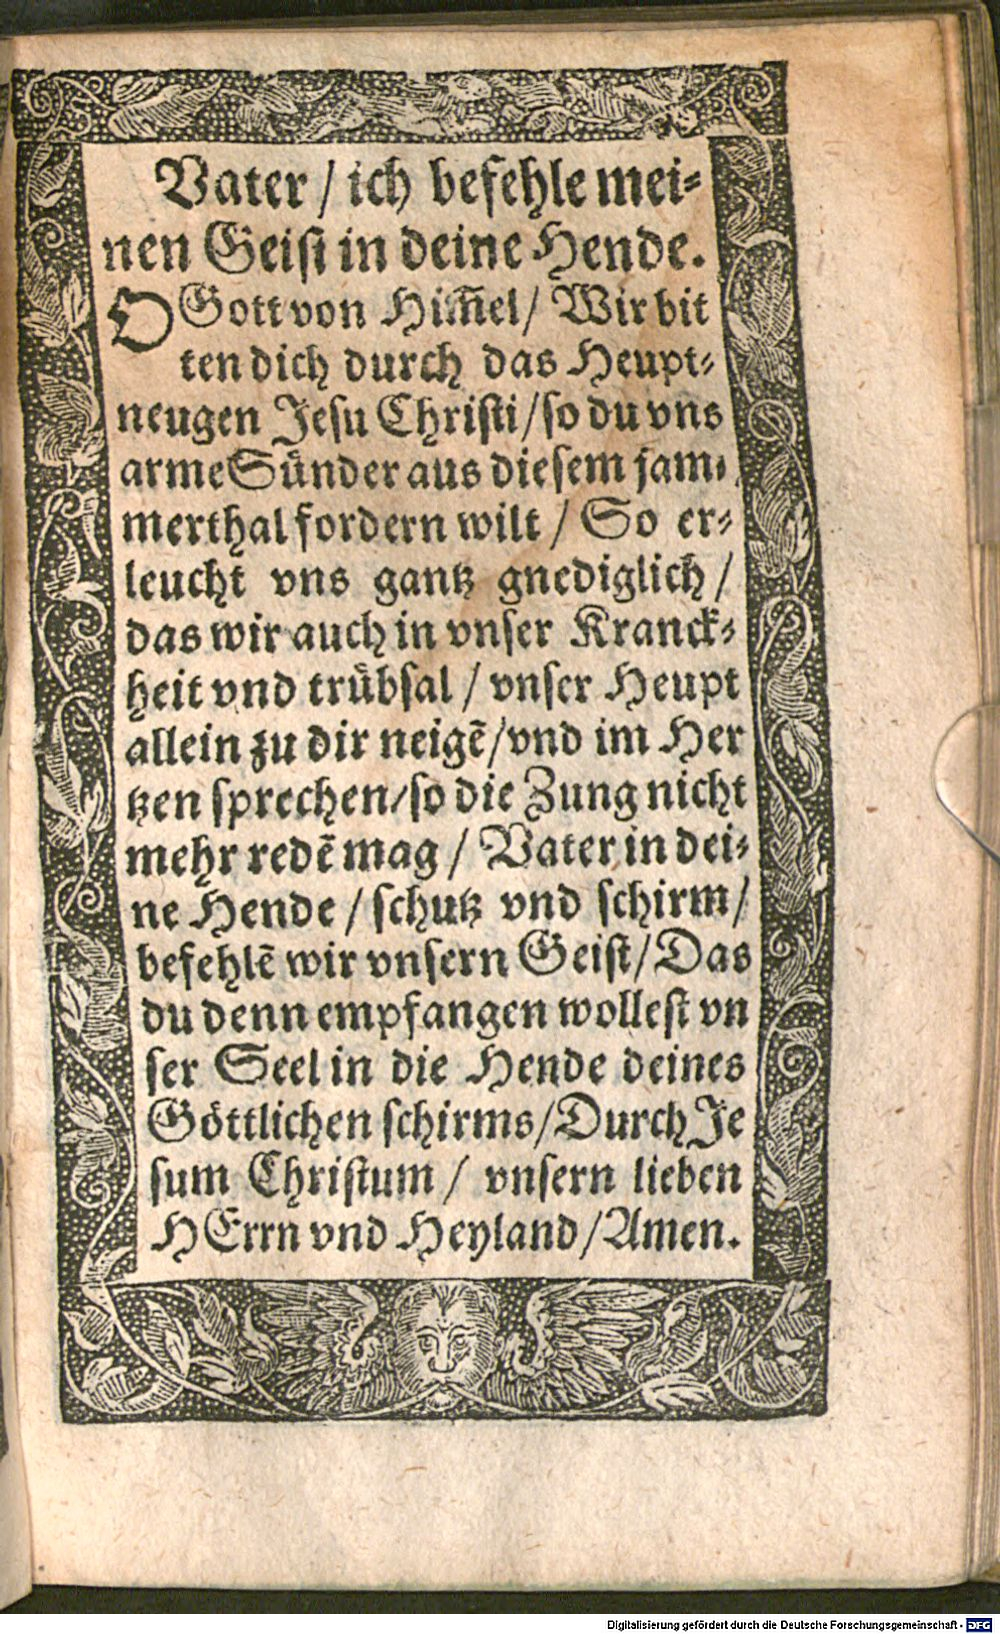 Vater / ich befehle mei⸗
nen Geiſt in deine Hende.
O Gott von Him̃el / Wir bit
ten dich durch das Heupt⸗
neugen Jeſu Chriſti / ſo du vns
arme Suͤnder aus dieſem jam⸗
merthal fordern wilt / So er⸗
leucht vns gantz gnediglich /
das wir auch in vnſer Kranck⸗
heit vnd truͤbſal / vnſer Heupt
allein zu dir neigẽ / vnd im Her
tzen ſprechen / ſo die Zung nicht
mehr redẽ mag / Vater in dei⸗
ne Hende / ſchutz vnd ſchirm /
befehlẽ wir vnſern Geiſt / Das
du denn empfangen wolleſt vn
ſer Seel in die Hende deines
Goͤttlichen ſchirms / Durch Je
ſum Chriſtum / vnſern lieben
HErrn vnd Heyland / Amen.
Digitalisierung gefördert durch die Deutsche Forschungsgemeinschaft - DFG